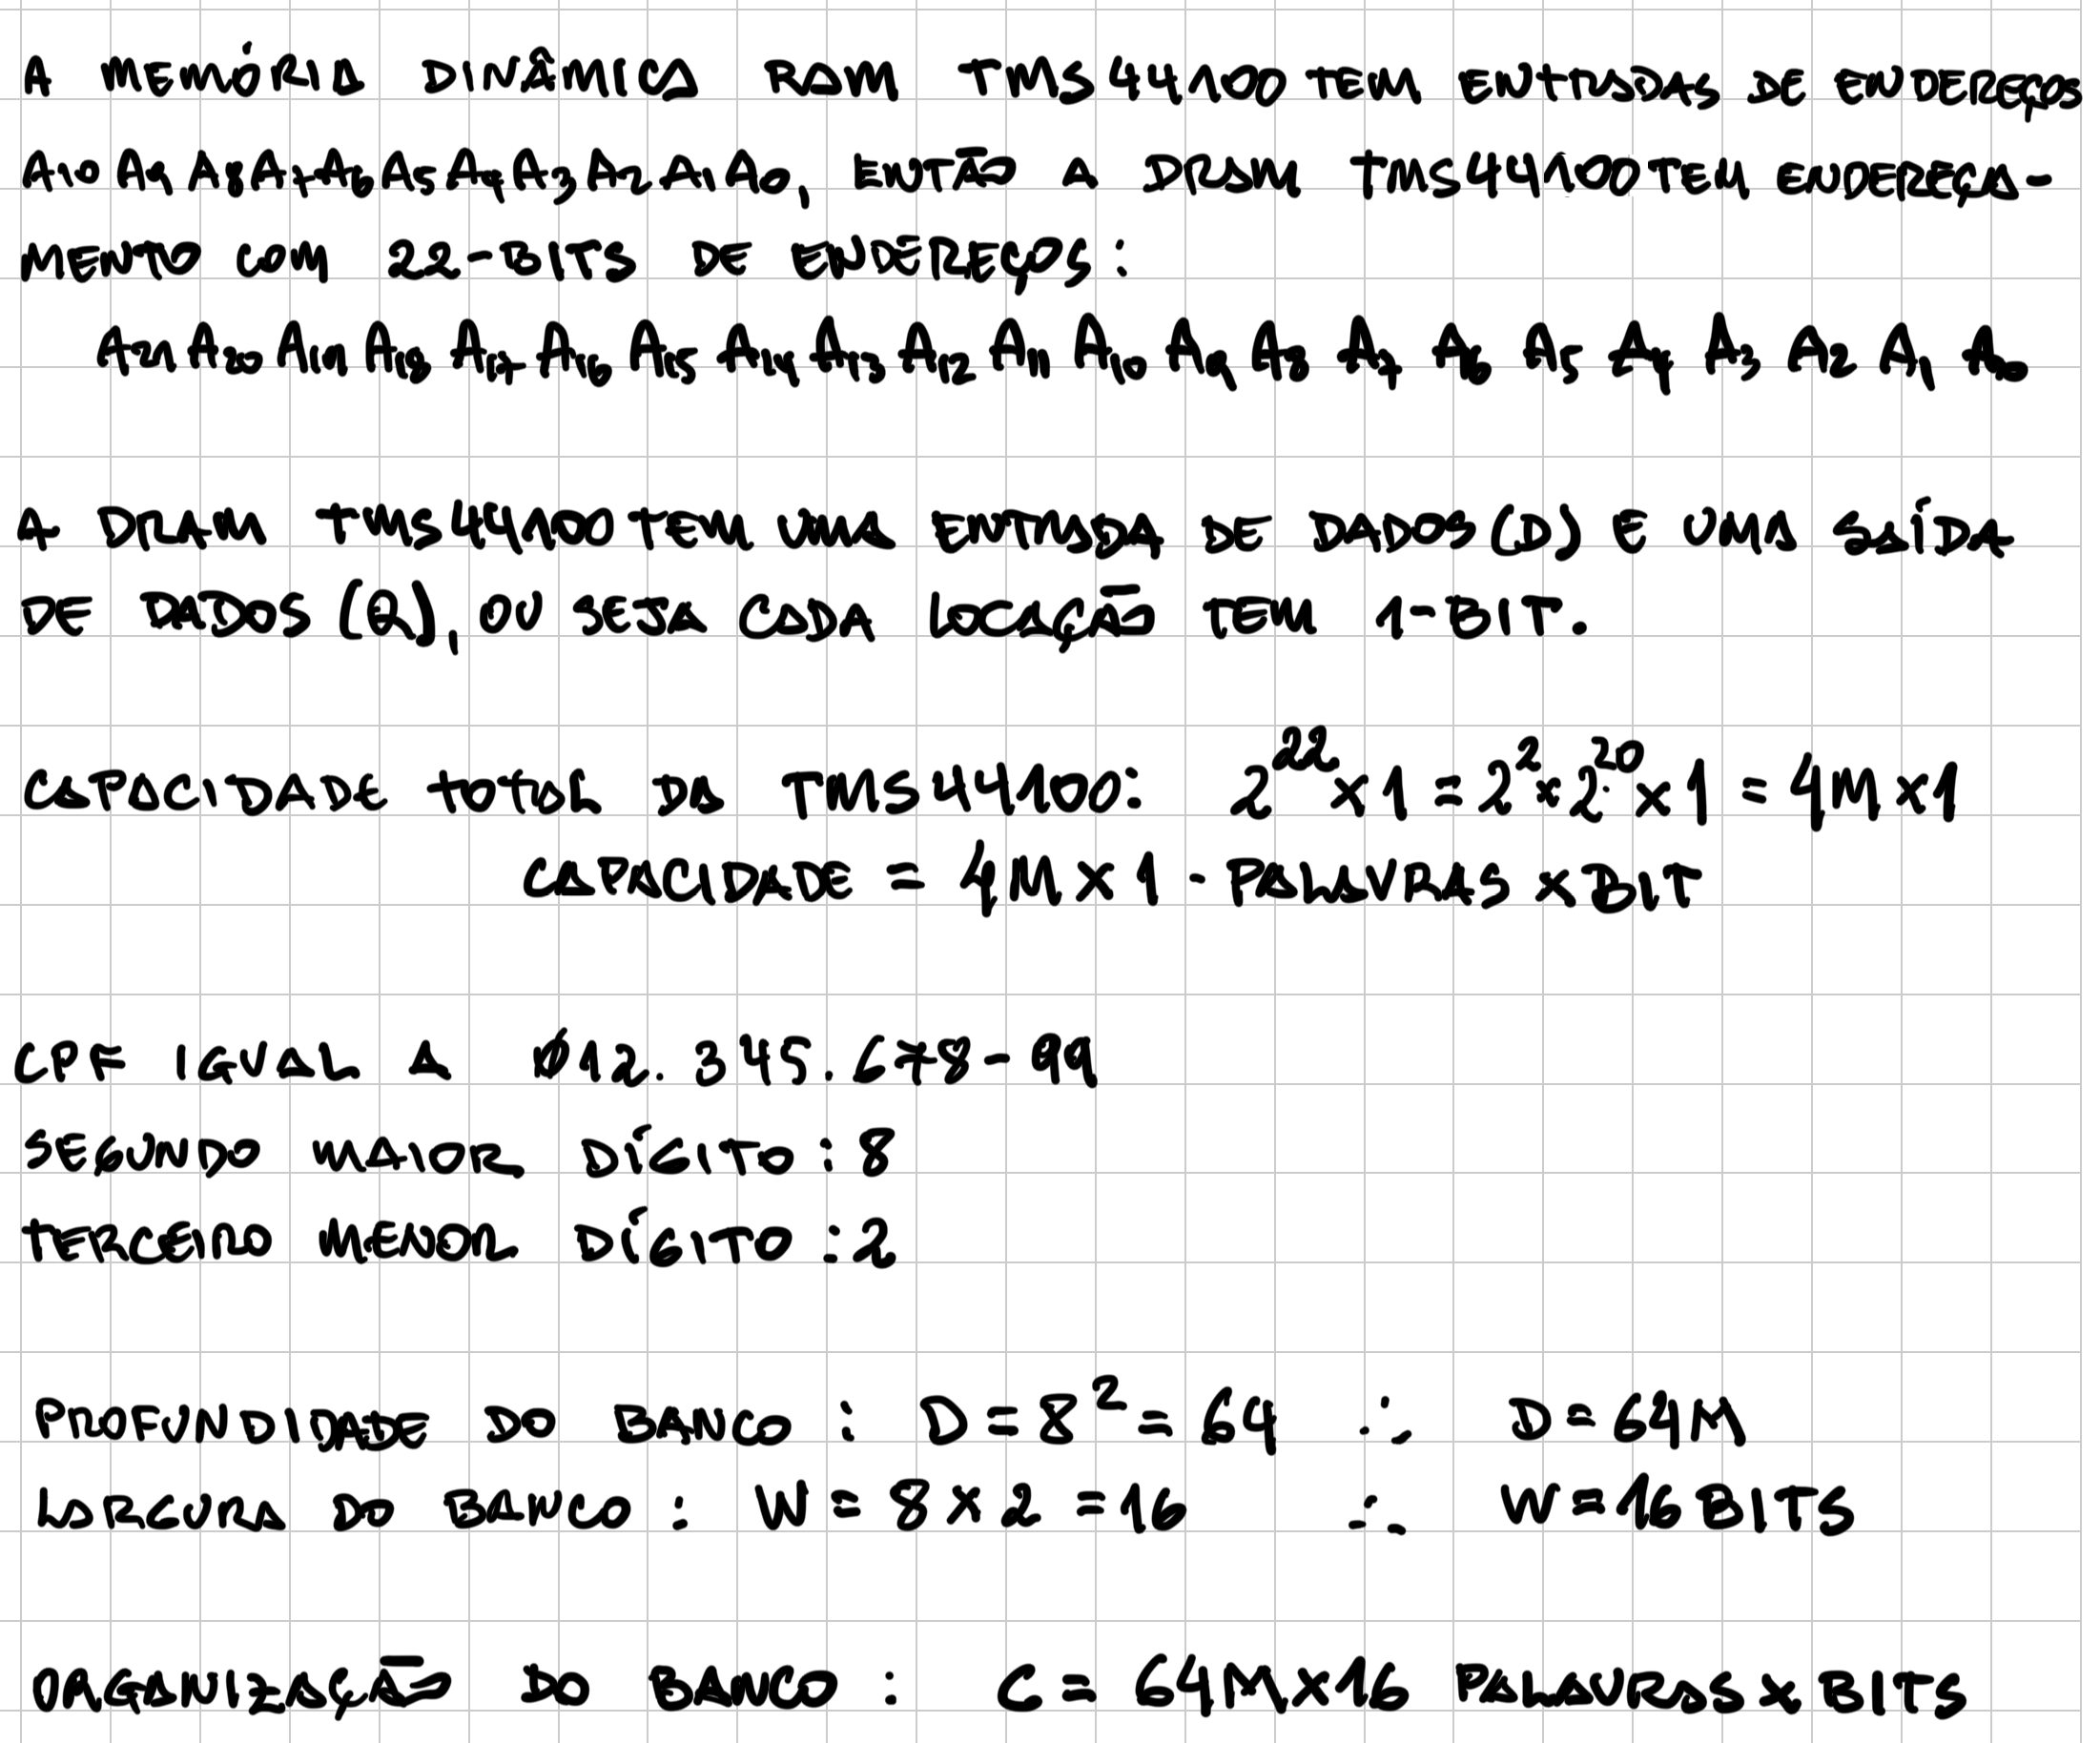 A MEMÓRIA DINÂMICA RAM TMS44100 TEM ENTRADAS DE ENDEREÇOS
A10 A9 A8 A7 A6 A5 A4 A3 A2 A1 A0, ENTÃO A DRAM TMS44100 TEM ENDEREÇA-
MENTO COM 22-BITS DE ENDEREÇOS:
A21 A20 A19 A18 A17 A16 A15 A14 A13 A12 A11 A10 A9 A8 A7 A6 A5 A4 A3 A2 A1 A0
A DRAM TMS44100 TEM UMA ENTRADA DE DADOS (D) E UMA SAÍDA
DE DADOS (Q), OU SEJA CADA LOCAÇÃO TEM 1-BIT.
CAPACIDADE TOTAL DA TMS44100: 2²² x 1 = 2² x 2²⁰ x 1 = 4M x 1
CAPACIDADE = 4M x 1 - PALAVRAS x BIT
CPF IGUAL A Ø12.345.678-99
SEGUNDO MAIOR DÍGITO: 8
TERCEIRO MENOR DÍGITO: 2
PROFUNDIDADE DO BANCO: D = 8² = 64 ∴ D = 64M
LARGURA DO BANCO: W = 8 x 2 = 16 ∴ W = 16 BITS
ORGANIZAÇÃO DO BANCO: C = 64M x 16 PALAVRAS x BITS